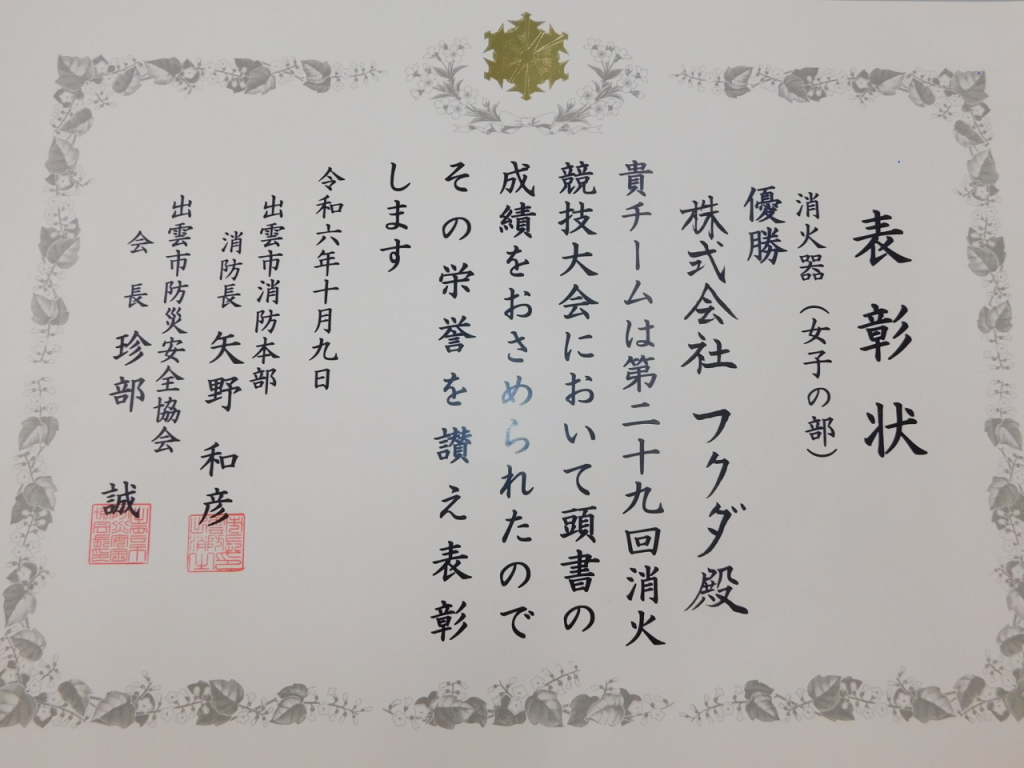 表彰状
消火器（女子の部）
優勝
株式会社 フクダ殿
貴チームは第二十九回消火
競技大会において頭書の
成績をおさめられたので
その栄誉を讃え表彰
します
令和六年十月九日
出雲市消防本部
消防長 矢野 和彦
出雲市防災安全協会
会長 珍部 誠